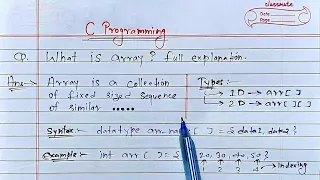 classmate
Date
Page
C Programming
Q. What is array? full explanation.
Ans→ Array is a collection
of fixed sized sequence
of similar .....
Types:
→ 1D → arr[ ]
→ 2D → arr[ ][ ]
Syntax: datatype arr name[ ] = {data1, data2}
Example: int arr[ ] = { 20, 30, 40, 50}
1 2 3 4 → Indexing